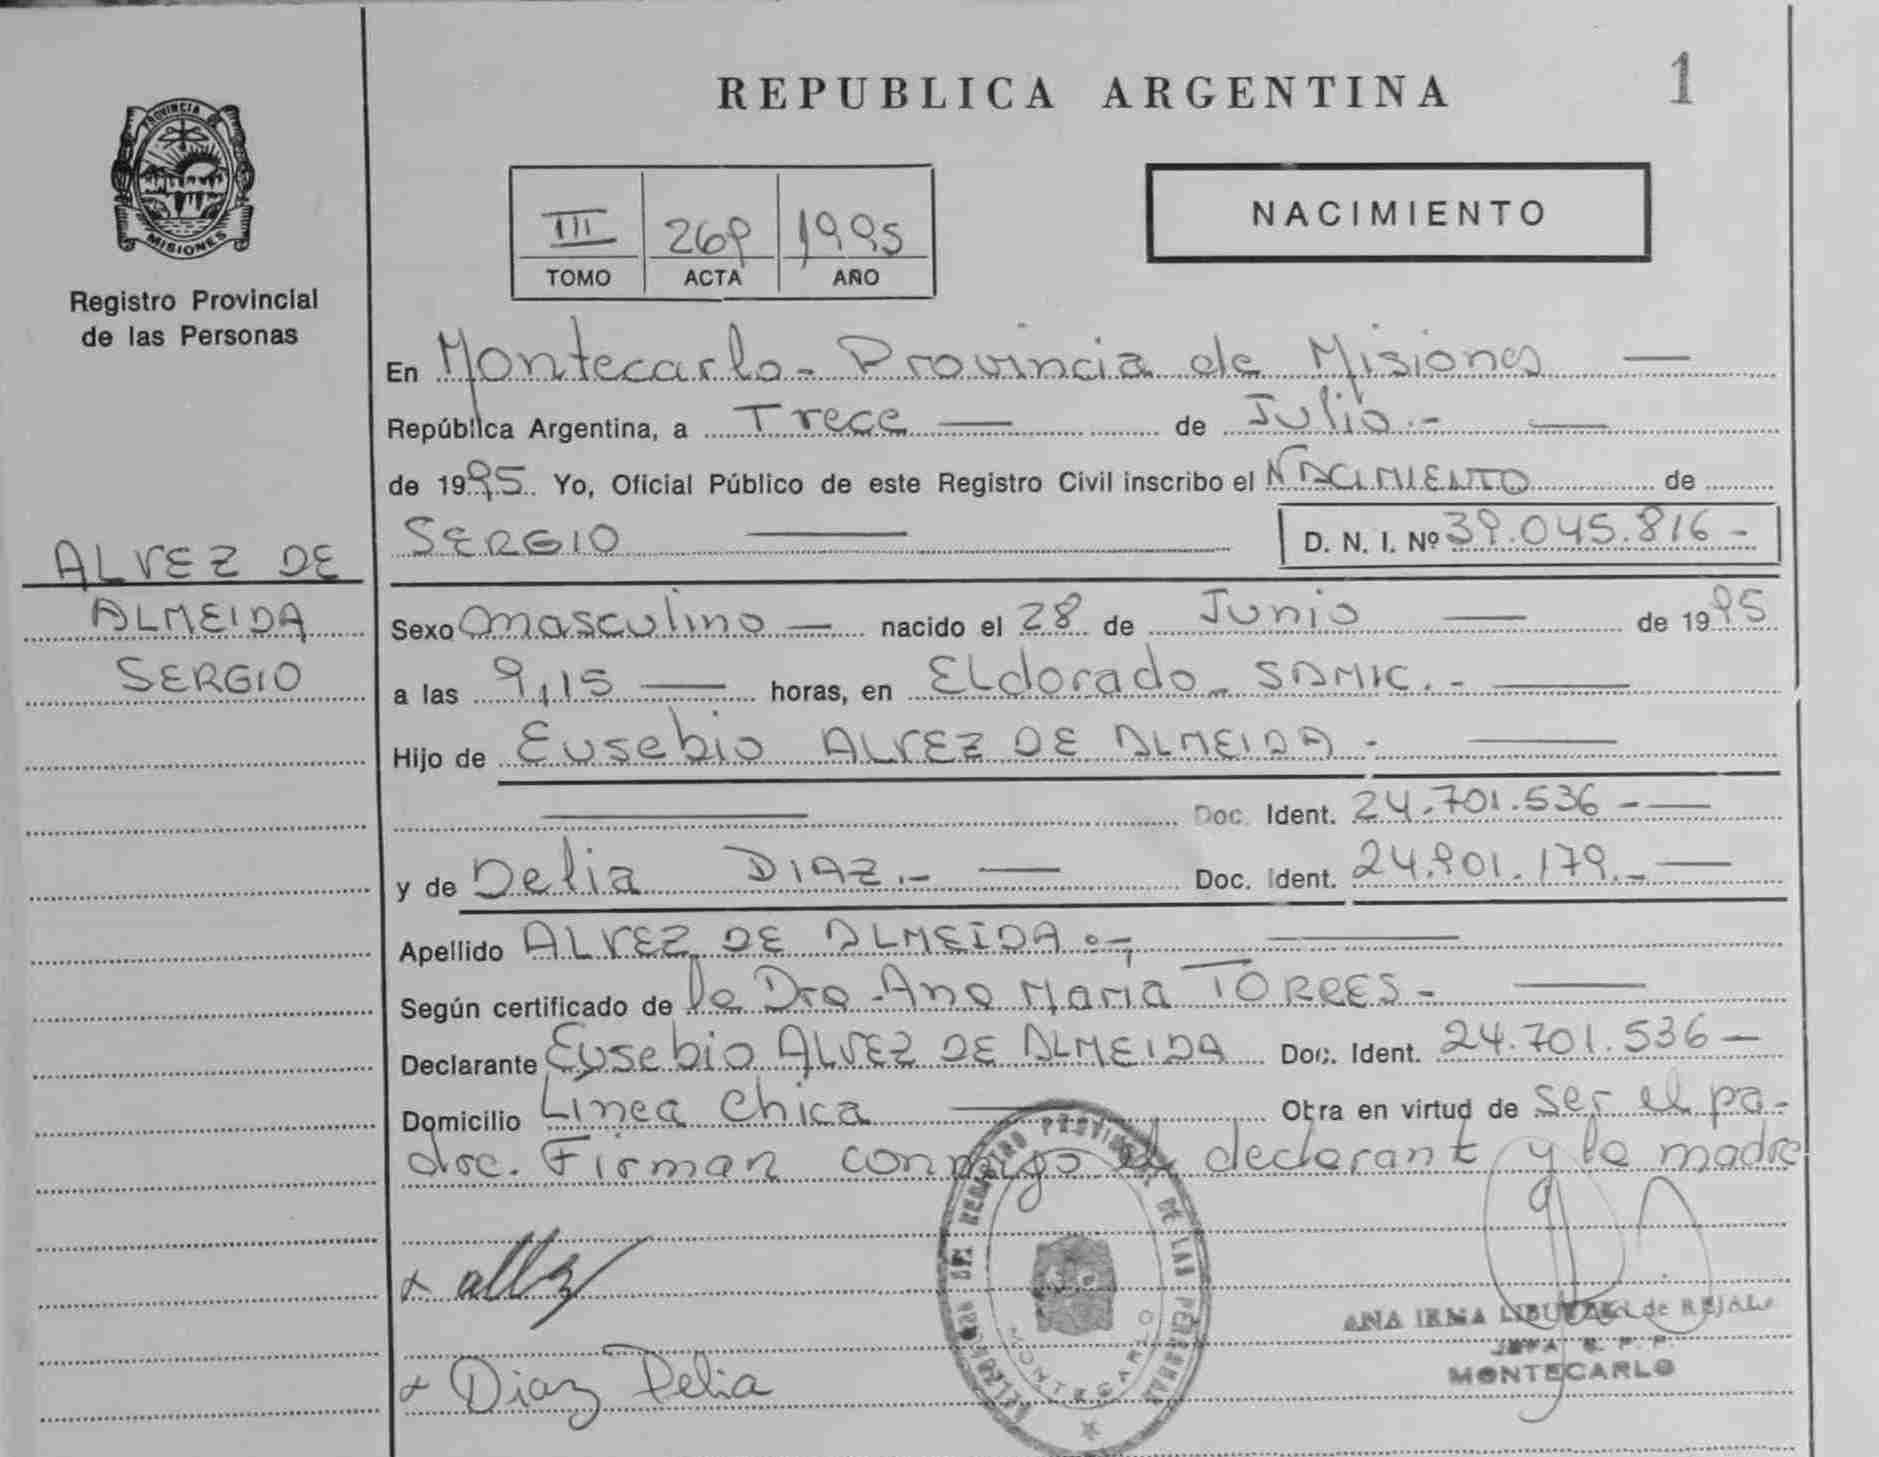 REPUBLICA ARGENTINA
1
PROVINCIA DE
MISIONES
Registro Provincial
de las Personas
III 269 1995
TOMO ACTA AÑO
NACIMIENTO
En Montecarlo - Provincia de Misiones
República Argentina, a Trece de Julio.-
de 1995. Yo, Oficial Público de este Registro Civil inscribo el NACIMIENTO de
SERGIO D. N. I. Nº 39.045.816 -
ALVEZ DE
ALMEIDA
SERGIO
Sexo masculino nacido el 28 de Junio de 1995
a las 9,15 horas, en ELdorado - SAMIC.-
Hijo de Eusebio ALVEZ DE ALMEIDA -
Doc. Ident. 24.701.536 -
y de Delia DIAZ.- Doc. Ident. 24.901.179.-
Apellido ALVEZ DE ALMEIDA.-
Según certificado de la Dra. Ana María TORRES -
Declarante Eusebio ALVEZ DE ALMEIDA Doc. Ident. 24.701.536 -
Domicilio Linea Chica Obra en virtud de ser el pa-
dre. Firman conmigo el declarant y la madre
Diaz Delia
REGISTRO PROVINCIAL DE LAS PERSONAS
MONTECARLO
ANA IRMA de
JEFA R. P. P.
MONTECARLO